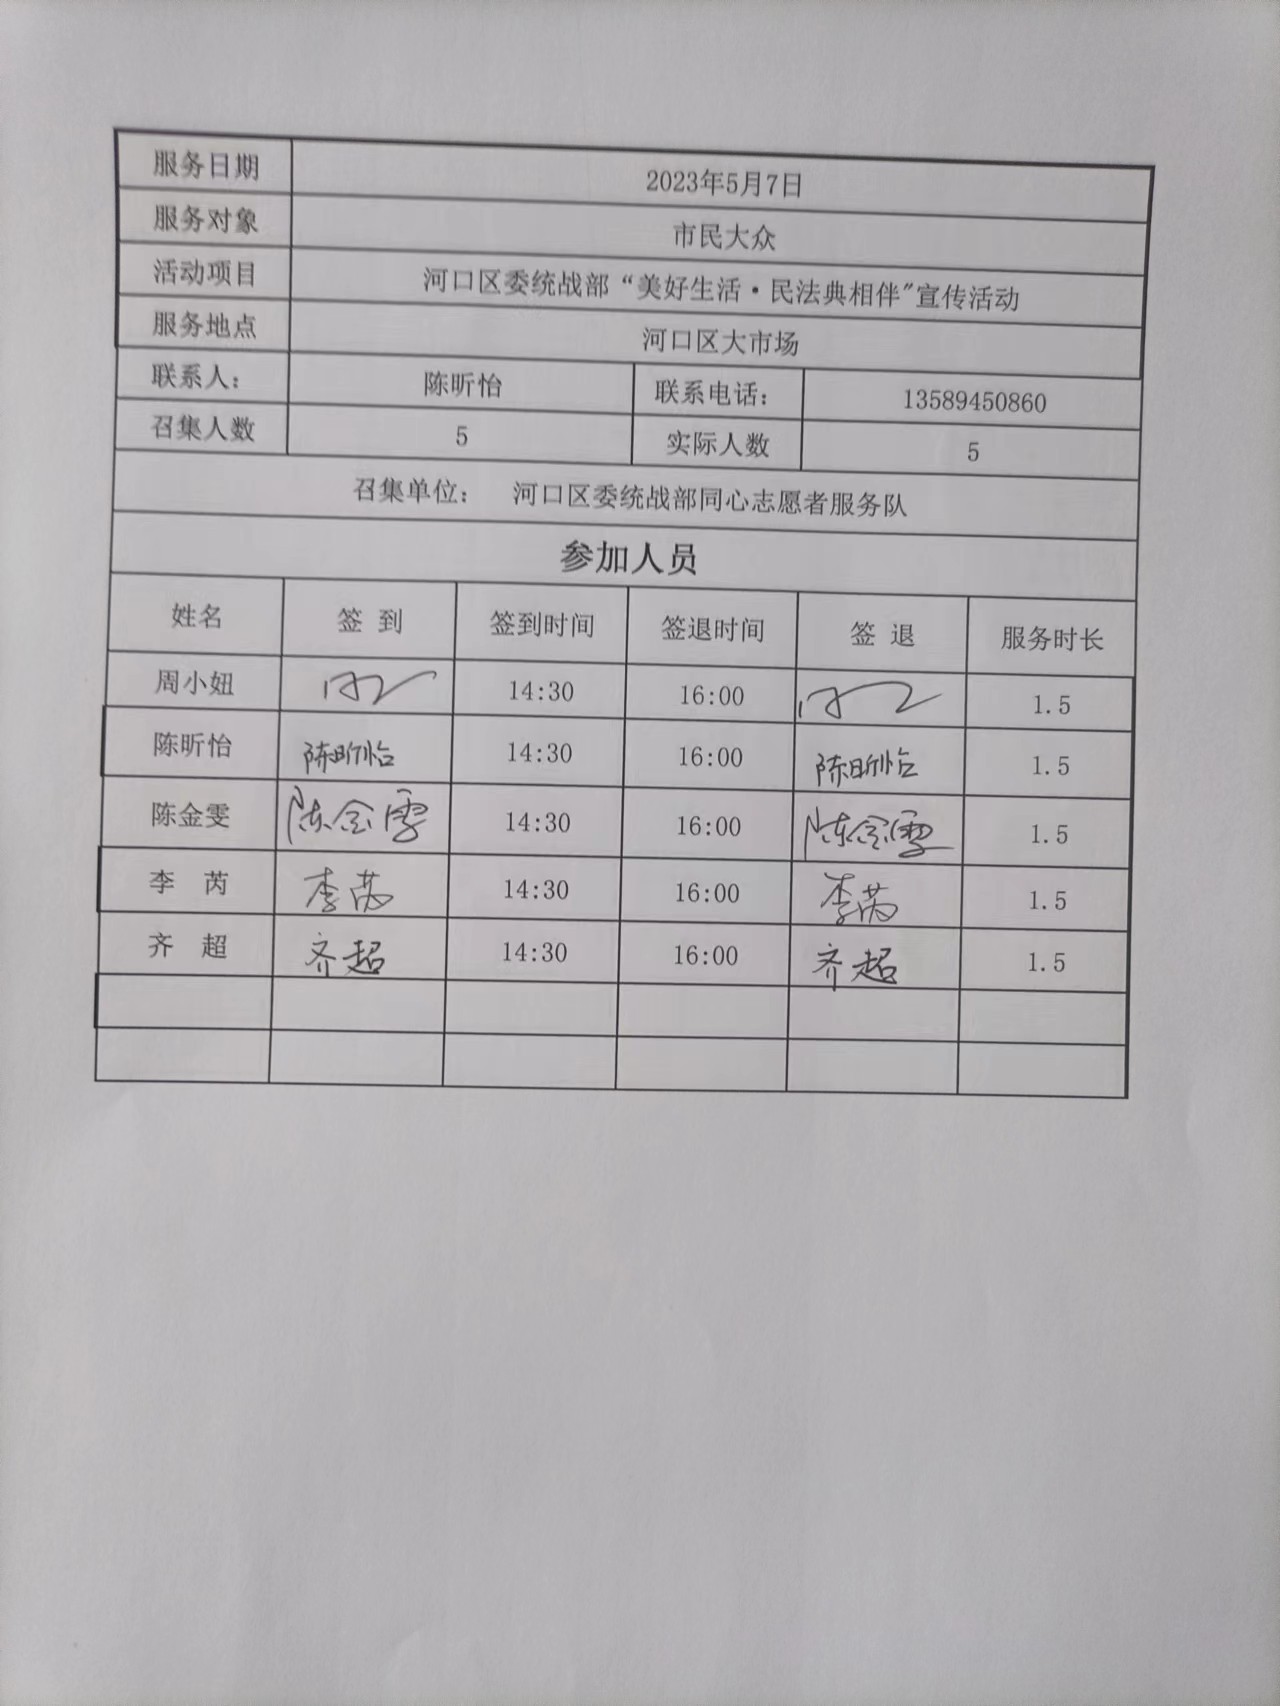 服务日期 2023年5月7日
服务对象 市民大众
活动项目 河口区委统战部“美好生活·民法典相伴"宣传活动
服务地点 河口区大市场
联系人: 陈昕怡 联系电话: 13589450860
召集人数 5 实际人数 5
召集单位: 河口区委统战部同心志愿者服务队
参加人员
姓名 签 到 签到时间 签退时间 签 退 服务时长
周小妞 14:30 16:00 1.5
陈昕怡 陈昕怡 14:30 16:00 陈昕怡 1.5
陈金雯 陈金雯 14:30 16:00 陈金雯 1.5
李 芮 李芮 14:30 16:00 李芮 1.5
齐 超 齐超 14:30 16:00 齐超 1.5